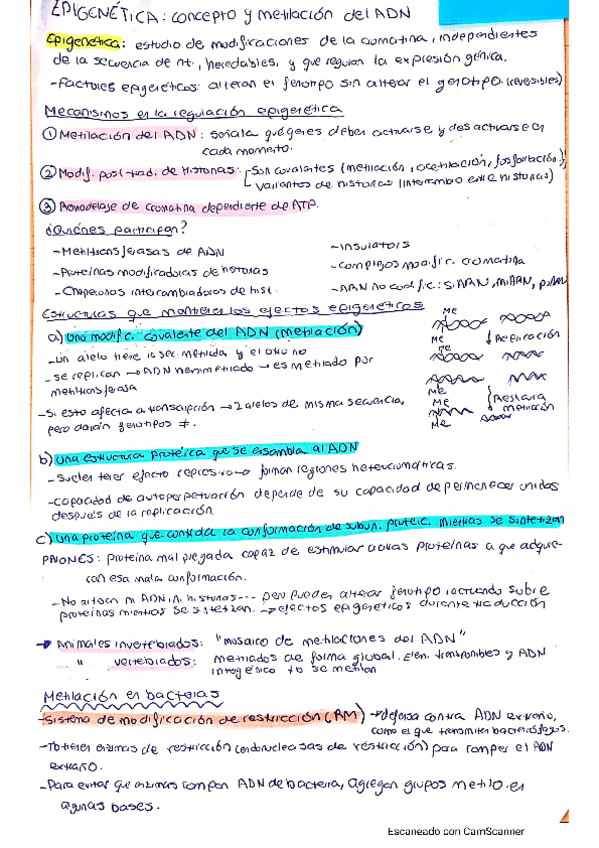 EPIGENÉTICA: concepto y metilación del ADN
Epigenética: estudio de modificaciones de la cromatina, independientes
de la secuencia de nt., heredables, y que regulan la expresión génica.
- Factores epigenéticos: alteran el fenotipo sin alterar el genotipo (reversibles)
Mecanismos en la regulación epigenética
① Metilación del ADN: señala qué genes deben activarse y desactivarse en
cada momento.
② Modif. post-trad. de histonas: Son covalentes (metilación, acetilación, fosforilación)
variantes de histonas (intercambio entre histonas)
③ Remodelaje de cromatina dependiente de ATP.
¿Quiénes participan?
- Metiltransferasas de ADN
- Proteínas modificadoras de histonas
- Chaperonas intercambiadoras de hist.
- Insulators
- Complejos modific. cromatina
- ARN no codific: siARN, miARN, piARN
Estructuras que mantienen los efectos epigenéticos
a) Una modific. covalente del ADN (metilación)
- Un alelo tiene la sec. metilada y el otro no
- se replican → ADN hemimetilado → es metilado por
metiltransferasa
- Si esto afecta a transcripción → 2 alelos de misma secuencia,
pero darán fenotipos ≠.
Me
Me
↓ Replicación
Me
Me
Me
Restaura
metilación
Me
b) Una estructura proteica que se ensambla al ADN
- Suelen tener efecto represivo → forman regiones heterocromáticas.
- Capacidad de autoperpetuación depende de su capacidad de permanecer unidas
después de la replicación
c) Una proteína que controla la conformación de subun. proteic. mientras se sintetizan
PRIONES: proteína mal plegada capaz de estimular a otras proteínas a que adquie-
ran esa mala conformación.
- No alteran ni ADN ni histonas... pero pueden alterar fenotipo actuando sobre
proteínas mientras se sintetizan. → efectos epigenéticos durante traducción
→ Animales invertebrados: "mosaico de metilaciones del ADN"
" vertebrados: metilados de forma global. Elem. transponibles y ADN
intergénico tb se metilan
Metilación en bacterias
- Sistema de modificación de restricción (RM) → defensa contra ADN extraño,
como el que transmiten bacteriófagos.
- Tb tienen enzimas de restricción (endonucleasas de restricción) para romper el ADN
extraño.
- Para evitar que enzimas rompan ADN de bacteria, agregan grupos metilo en
algunas bases.
Escaneado con CamScanner